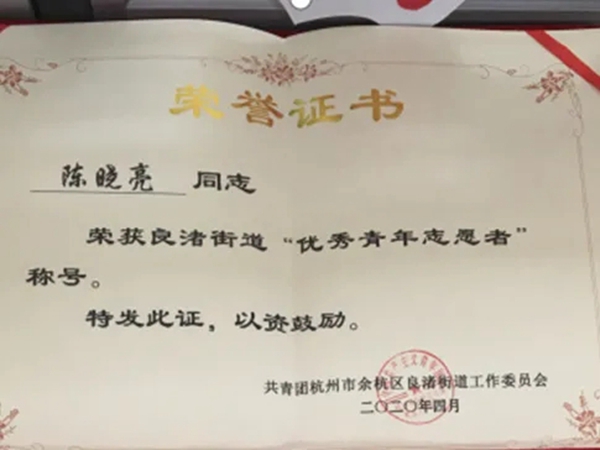 荣誉证书
陈晓亮 同志
荣获良渚街道“优秀青年志愿者”
称号。
特发此证，以资鼓励。
共青团杭州市余杭区良渚街道工作委员会
二〇二〇年四月